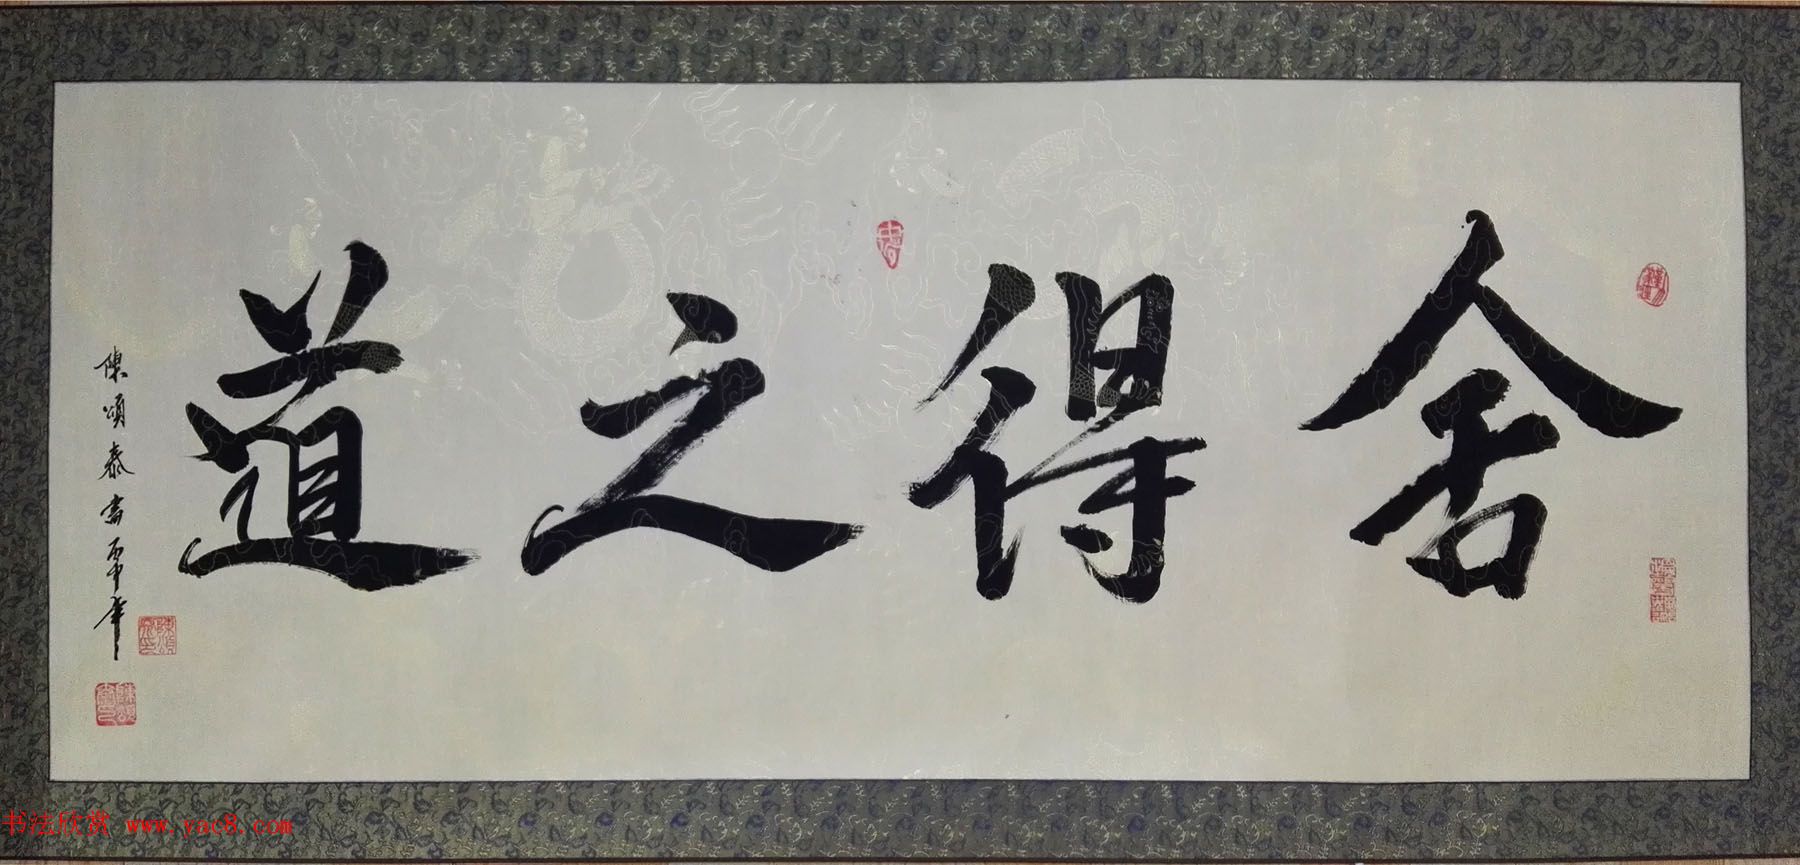 舍得之道
陳頌泰書丙申年
书法欣赏 www.yac8.com